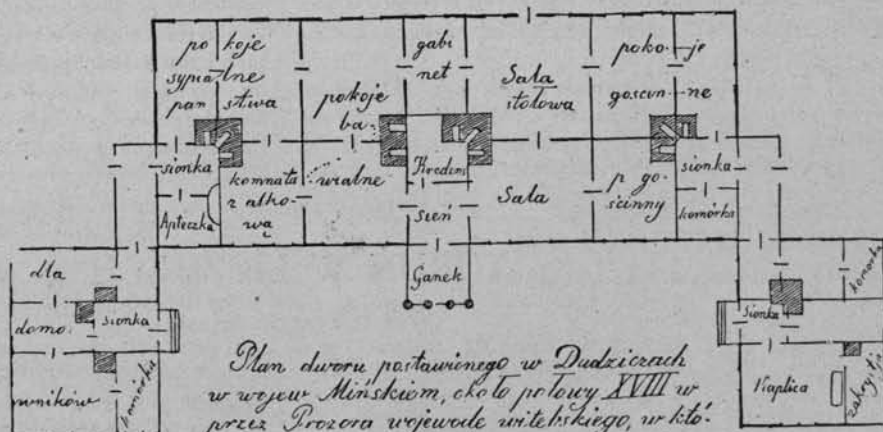 pokoje
sypialne
państwa
pokoje
ba-
wialne
gabi
net
Sala
stołowa
poko-je
gościn-ne
sionka
Apteczka
komnata
z alko-
wą
Kredens
sień
Sala
p. go-
ścinny
sionka
komórka
Ganek
dla
domo-
wników
sionka
komórka
Sionka
komórka
Kaplica
zakrystja
Plan dworu postawionego w Dudziczach
w wojew Mińskiem, około połowy XVIII w
przez Prozora wojewodę witebskiego, w któ-